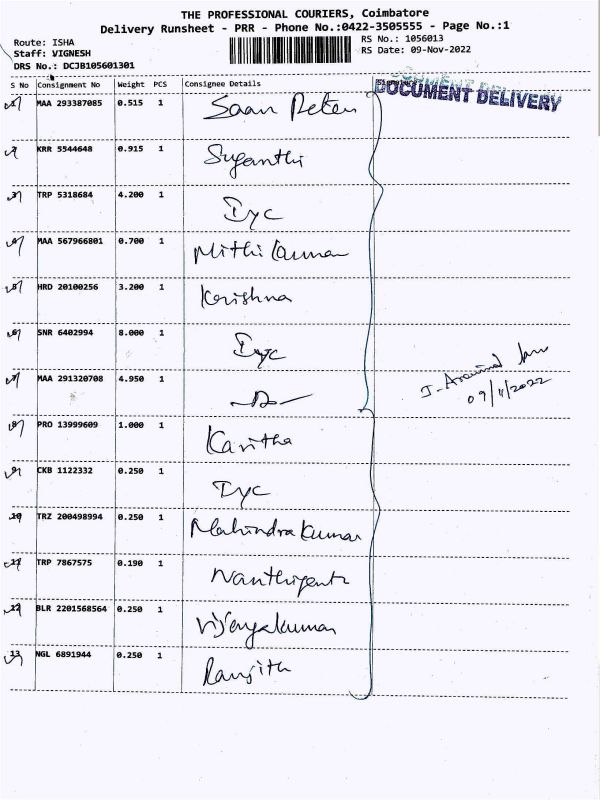 THE PROFESSIONAL COURIERS, Coimbatore
Delivery Runsheet - PRR - Phone No.:0422-3505555 - Page No.:1
Route: ISHA
RS No.: 1056013
Staff: VIGNESH
RS Date: 09-Nov-2022
DRS No.: DCJB105601301
S No Consignment No Weight PCS Consignee Details
DOCUMENT DELIVERY
MAA 293387085 0.515 1 Saan Peter
KRR 5544648 0.915 1 Suganthi
TRP 5318684 4.200 1 Iyc
MAA 567966801 0.700 1
HRD 20100256 3.200 1 Krishna
SNR 6402994 8.000 1 Iyc
MAA 291320708 4.950 1
09/11/2022
PRO 13999609 1.000 1 Kavitha
CKB 1122332 0.250 1 Iyc
10 TRZ 200498994 0.250 1 Mahindra Kumar
11 TRP 7867575 0.190 1
12 BLR 2201568564 0.250 1 Vijayakumar
13 NGL 6891944 0.250 1 Ranjith